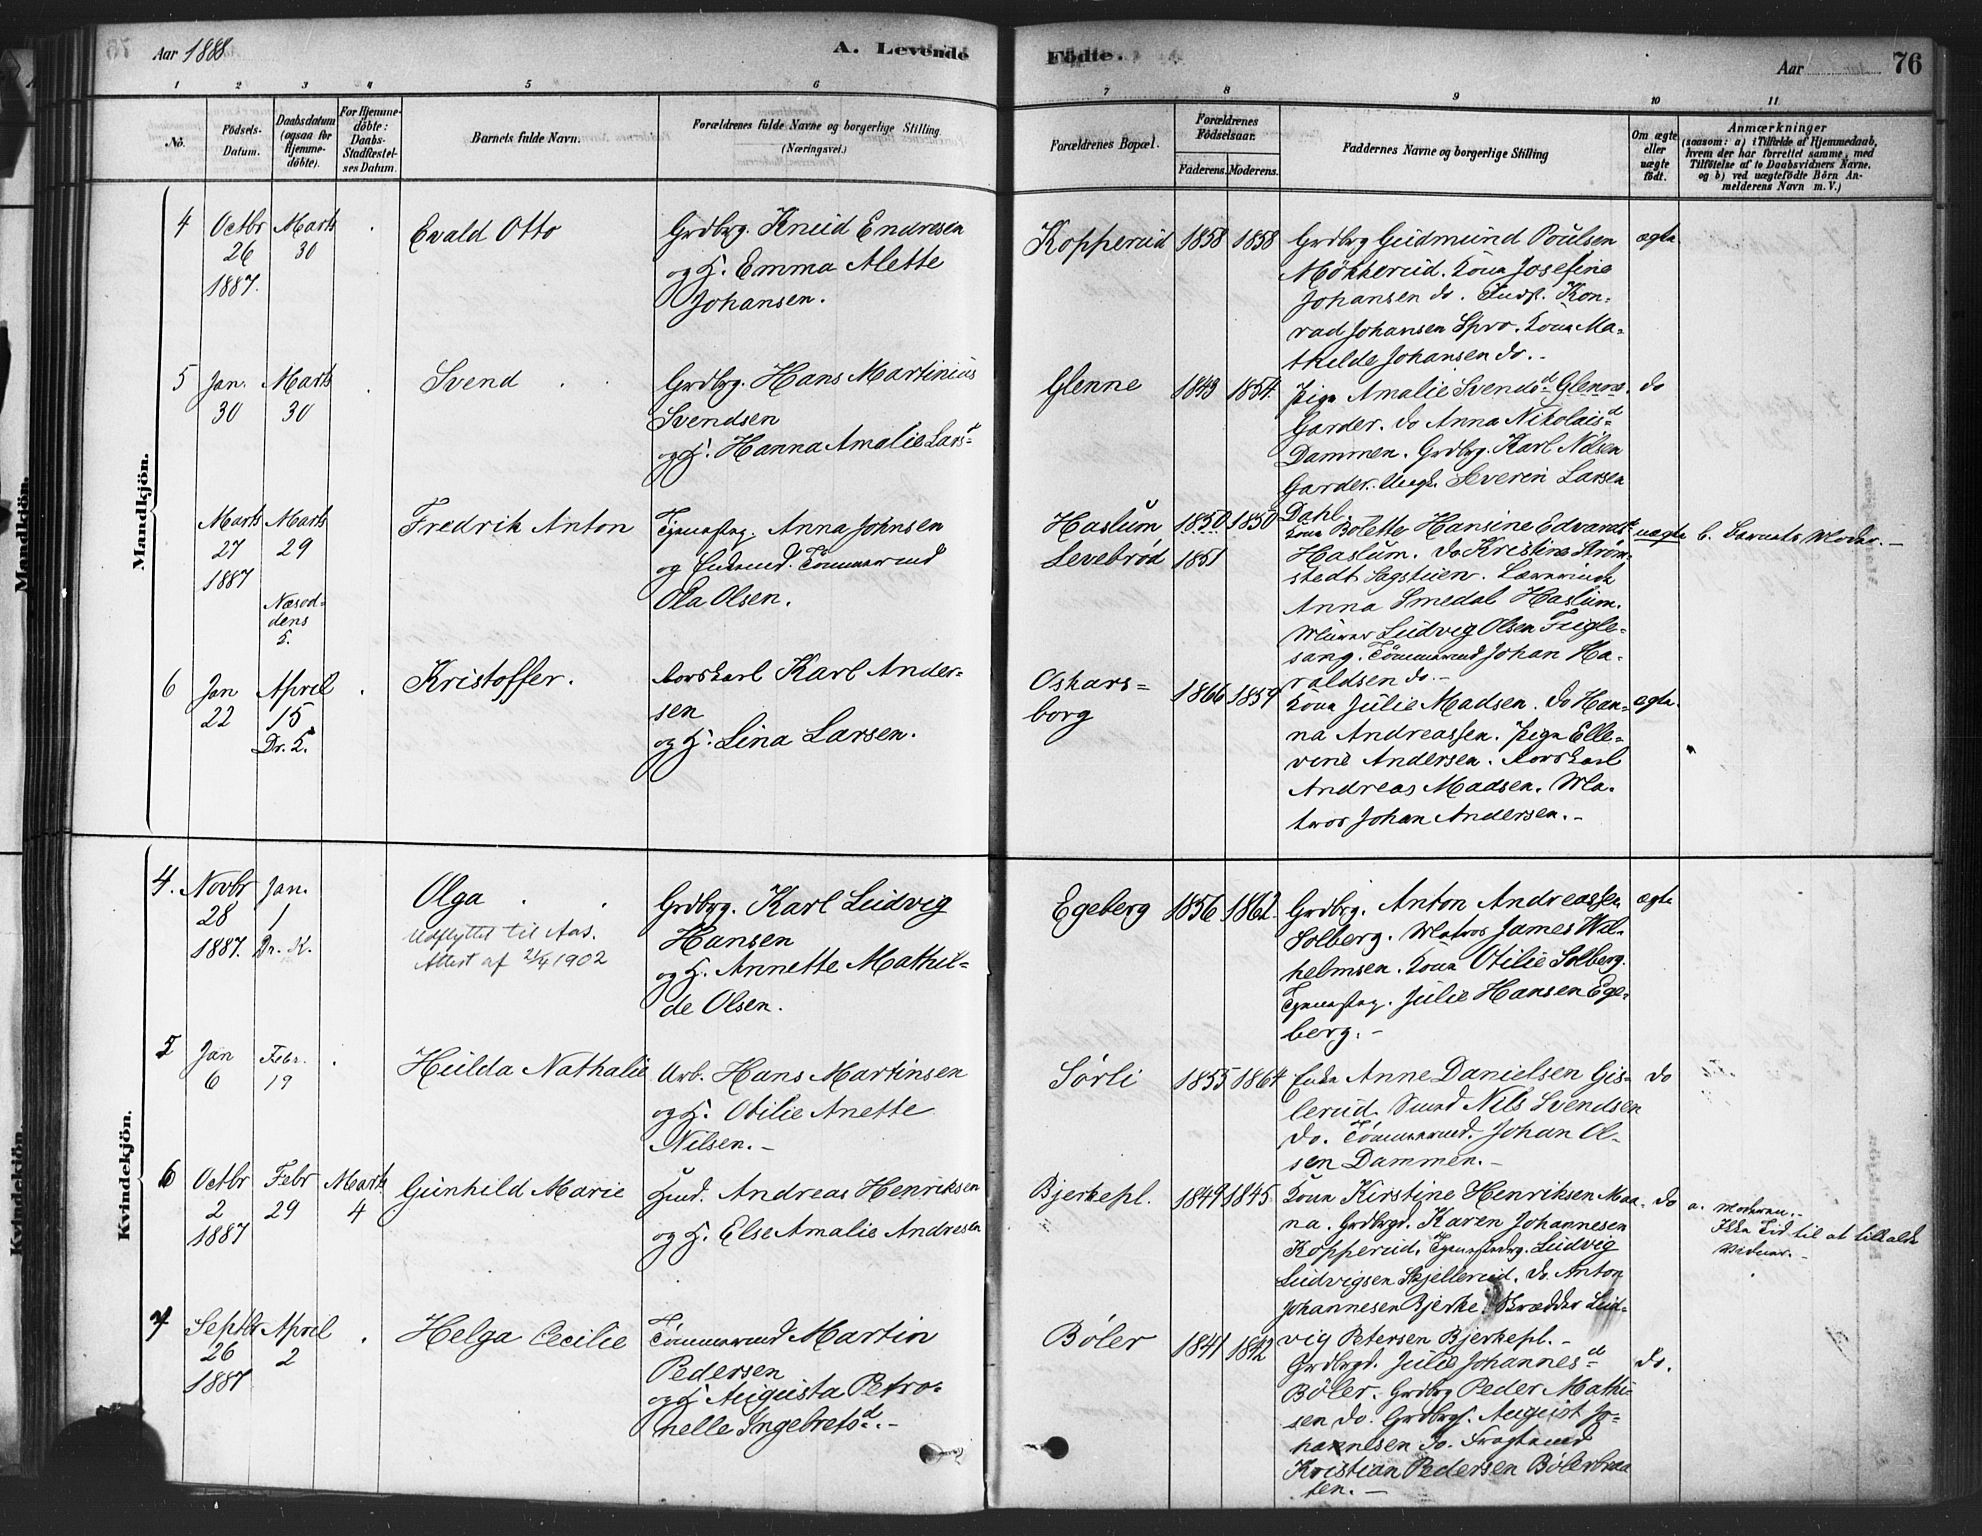 Aar 1888
A. Levende
Födte.
Aar
76
1 2 3 4 5 6 7 8 9 10 11
No.
Födsels-Datum.
Daabsdatum (ogsaa for Hjemme-döbte).
For Hjemme-döbte: Daabs-Stadfæstel-ses Datum.
Barnets fulde Navn.
Forældrenes fulde Navne og borgerlige Stilling.
(Næringsvei.)
Forældrenes Bopæl.
Forældrenes Födselsaar.
Faderens. Moderens.
Faddernes Navne og borgerlige Stilling
Om ægte eller uægte födt.
Anmærkninger
(saasom: a) i Tilfælde af Hjemmedaab, hvem der har forrettet samme, med Tilföielse af to Daabsvidners Navne, og b) ved uægtefödte Börn An-melderens Navn m. V.)
Mandkjön.
4 Octbr 26 1887. Marts 30
Evald Otto
Grdbrg. Knud Endresen
og H. Emma Alette
Johansen.
Kopperud 1858 1858
Grdbrg Gudmund Poulsen
Mökkerud. Kona Josefine
Johansen do. Inds. Kon-
rad Johansen Spro. Kona Ma-
thilde Johansen do.-
ægte
5 Jan. 30 Marts 30
Svend
Grdbrg. Hans Martinius
Svendsen
og H. Hanna Amalie Larsd
Glenne 1849 1854.
Pige Amalie Svendsd Glenne.
Garder. do Anna Nikolaisd
Dammen. Grdbrg. Karl Nilsen
Garder. Ungk. Severin Larsen
Dahl.
do
Marts 27 1887 Marts 29
Næsod-
dens
K.
Fredrik Anton
Tjenestpg. Anna Johnsen
og Enkemd. Tömmermd
Ola Olsen.
Haslum 1850 1850
Levebröd 1851
Kona Bolette Hansine Edvardsd
Haslum. do Kristine Ström-
stedt Sagstuen. Lærerinde
Anna Smedal Haslum.
Murer Ludvig Olsen Fugle-
sang. Tömmermd Johan Ha-
raldsen do.-
uægte
b. Barnets Moder.-
6 Jan 22 April 15 Dr. K.
Kristoffer.
Korskarl Karl Ander-
sen
og H. Lina Larsen.
Oskars=
borg
1866 1859
Kona Julie Madsen. do Han-
na Andreassen. Pige Elle-
vine Andersen. Korskarl
Andreas Madsen. Ma-
tros Johan Andersen.-
ægte.
Kvindekjön.
4. Novbr 28 1887. Jan. 1 Dr. K.
Olga
Udflyttet til Aas.
Attest af 2/4 1902
Grdbrg. Karl Ludvig
Hansen
og H. Annette Mathil-
de Olsen.
Egeberg 1856 1862.
Grdbrg. Anton Andreassen
Solberg. Matros James Wil-
helmsen. Kona Otilie Solberg.
Tjenestpg. Julie Hansen Ege-
berg.-
ægte
5 Jan 6 Febr. 19
Hulda Nathalie
Arb. Hans Martinsen
og H. Otilie Anette
Nilsen.-
Sörli 1855 1864
Enke Anne Danielsen Gis-
lerud. Smed Nils Svendsen
do. Tömmermd. Johan Ol-
sen Dammen.-
do
6 Octbr 2 1887 Febr 29 Marts 4
Gunhild Marie
Husmd. Andreas Henriksen
og H. Else Amalie Andresen
Bjerkepl. 1849 1845
Kona Kirstine Henriksen Maa-
na. Grdbrgd. Karen Johannesen
Kopperud. Tjenestedrg. Ludvig
Ludvigsen Skjellerud. do. Anton
Johannesen Bjerke. Skrædder Lud-
vig Petersen Bjerkepl.-
do
a. Moderen.-
Ikke Tid til at tilkalde
Vidner.-
7 Septbr 26 1887 April 2
Helga Cecilie
Tömmermd Martin
Pedersen
og H. Augusta Petro-
nelle Ingebretsd.-
Böler 1841 1842
Grdbrgd. Julie Johannesd
Böler. Grdbrg Peder Mathi-
sen do. Grdbrgs. August Jo-
hannesen do. Fragtemd
Kristian Pedersen Bölerbraa
ten.-
do.
Mandkjön.
Kvindekjön.